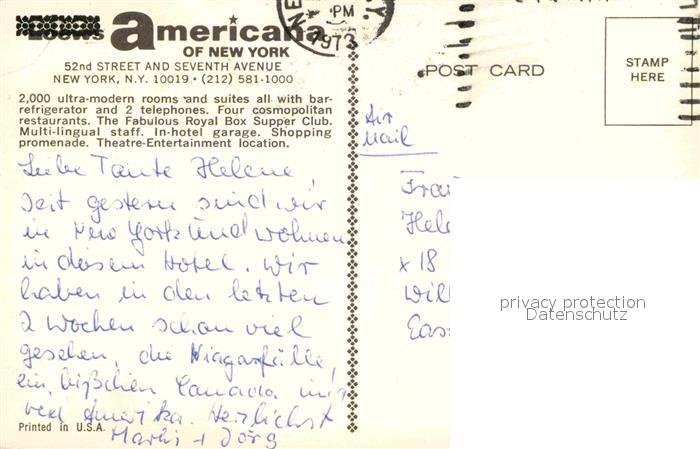 Loews americana
OF NEW YORK
52nd STREET AND SEVENTH AVENUE
NEW YORK, N.Y. 10019 • (212) 581-1000
2,000 ultra-modern rooms and suites all with bar-
refrigerator and 2 telephones. Four cosmopolitan
restaurants. The Fabulous Royal Box Supper Club.
Multi-lingual staff. In-hotel garage. Shopping
promenade. Theatre-Entertainment location.
Liebe Tante Helene,
seit gestern sind wir
in New York und wohnen
in diesem Hotel. Wir
haben in den letzten
2 Wochen schon viel
gesehen, die Niagarafälle,
ein bißchen Canada und
viel Amerika. Herzlichst
+ Jörg
Printed in U.S.A.
PM
1973
POST CARD
STAMP
HERE
Air
Mail
Frau
Hele
x 18
Wil
Eas
privacy protection
Datenschutz